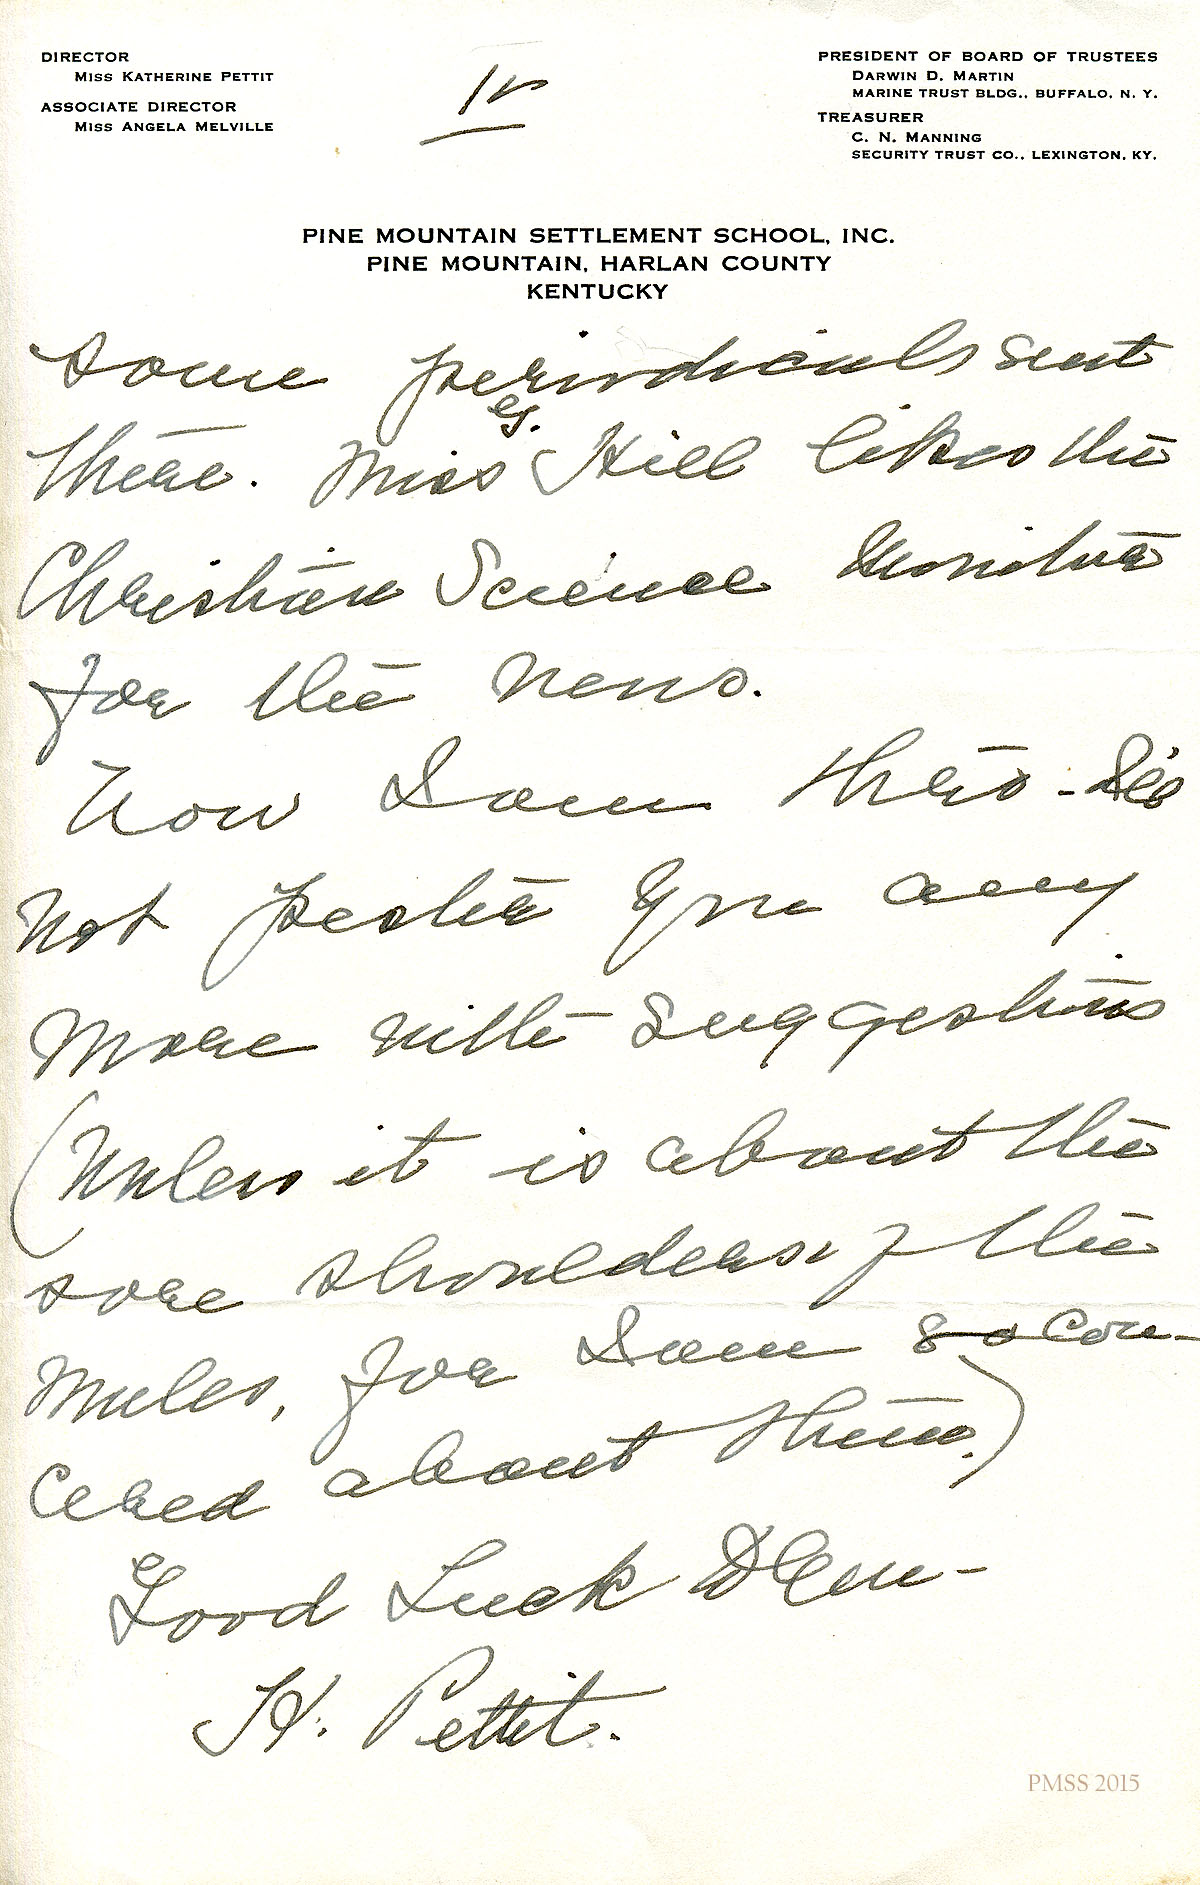 DIRECTOR
MISS KATHERINE PETTIT
ASSOCIATE DIRECTOR
MISS ANGELA MELVILLE
PRESIDENT OF BOARD OF TRUSTEES
DARWIN D. MARTIN
MARINE TRUST BLDG., BUFFALO, N. Y.
TREASURER
C. N. MANNING
SECURITY TRUST CO., LEXINGTON, KY.
PINE MOUNTAIN SETTLEMENT SCHOOL, INC.
PINE MOUNTAIN, HARLAN COUNTY
KENTUCKY
some periodicals sent
there. Miss G. Hill likes the
Christian Science Monitor
for the news.
Now I am thro - I'll
not pester you any
more with suggestions
(Unless it is about the
sore shoulders of the
mules, for I am so con-
cerned about them.)
Good Luck
K. Pettit.
PMSS 2015